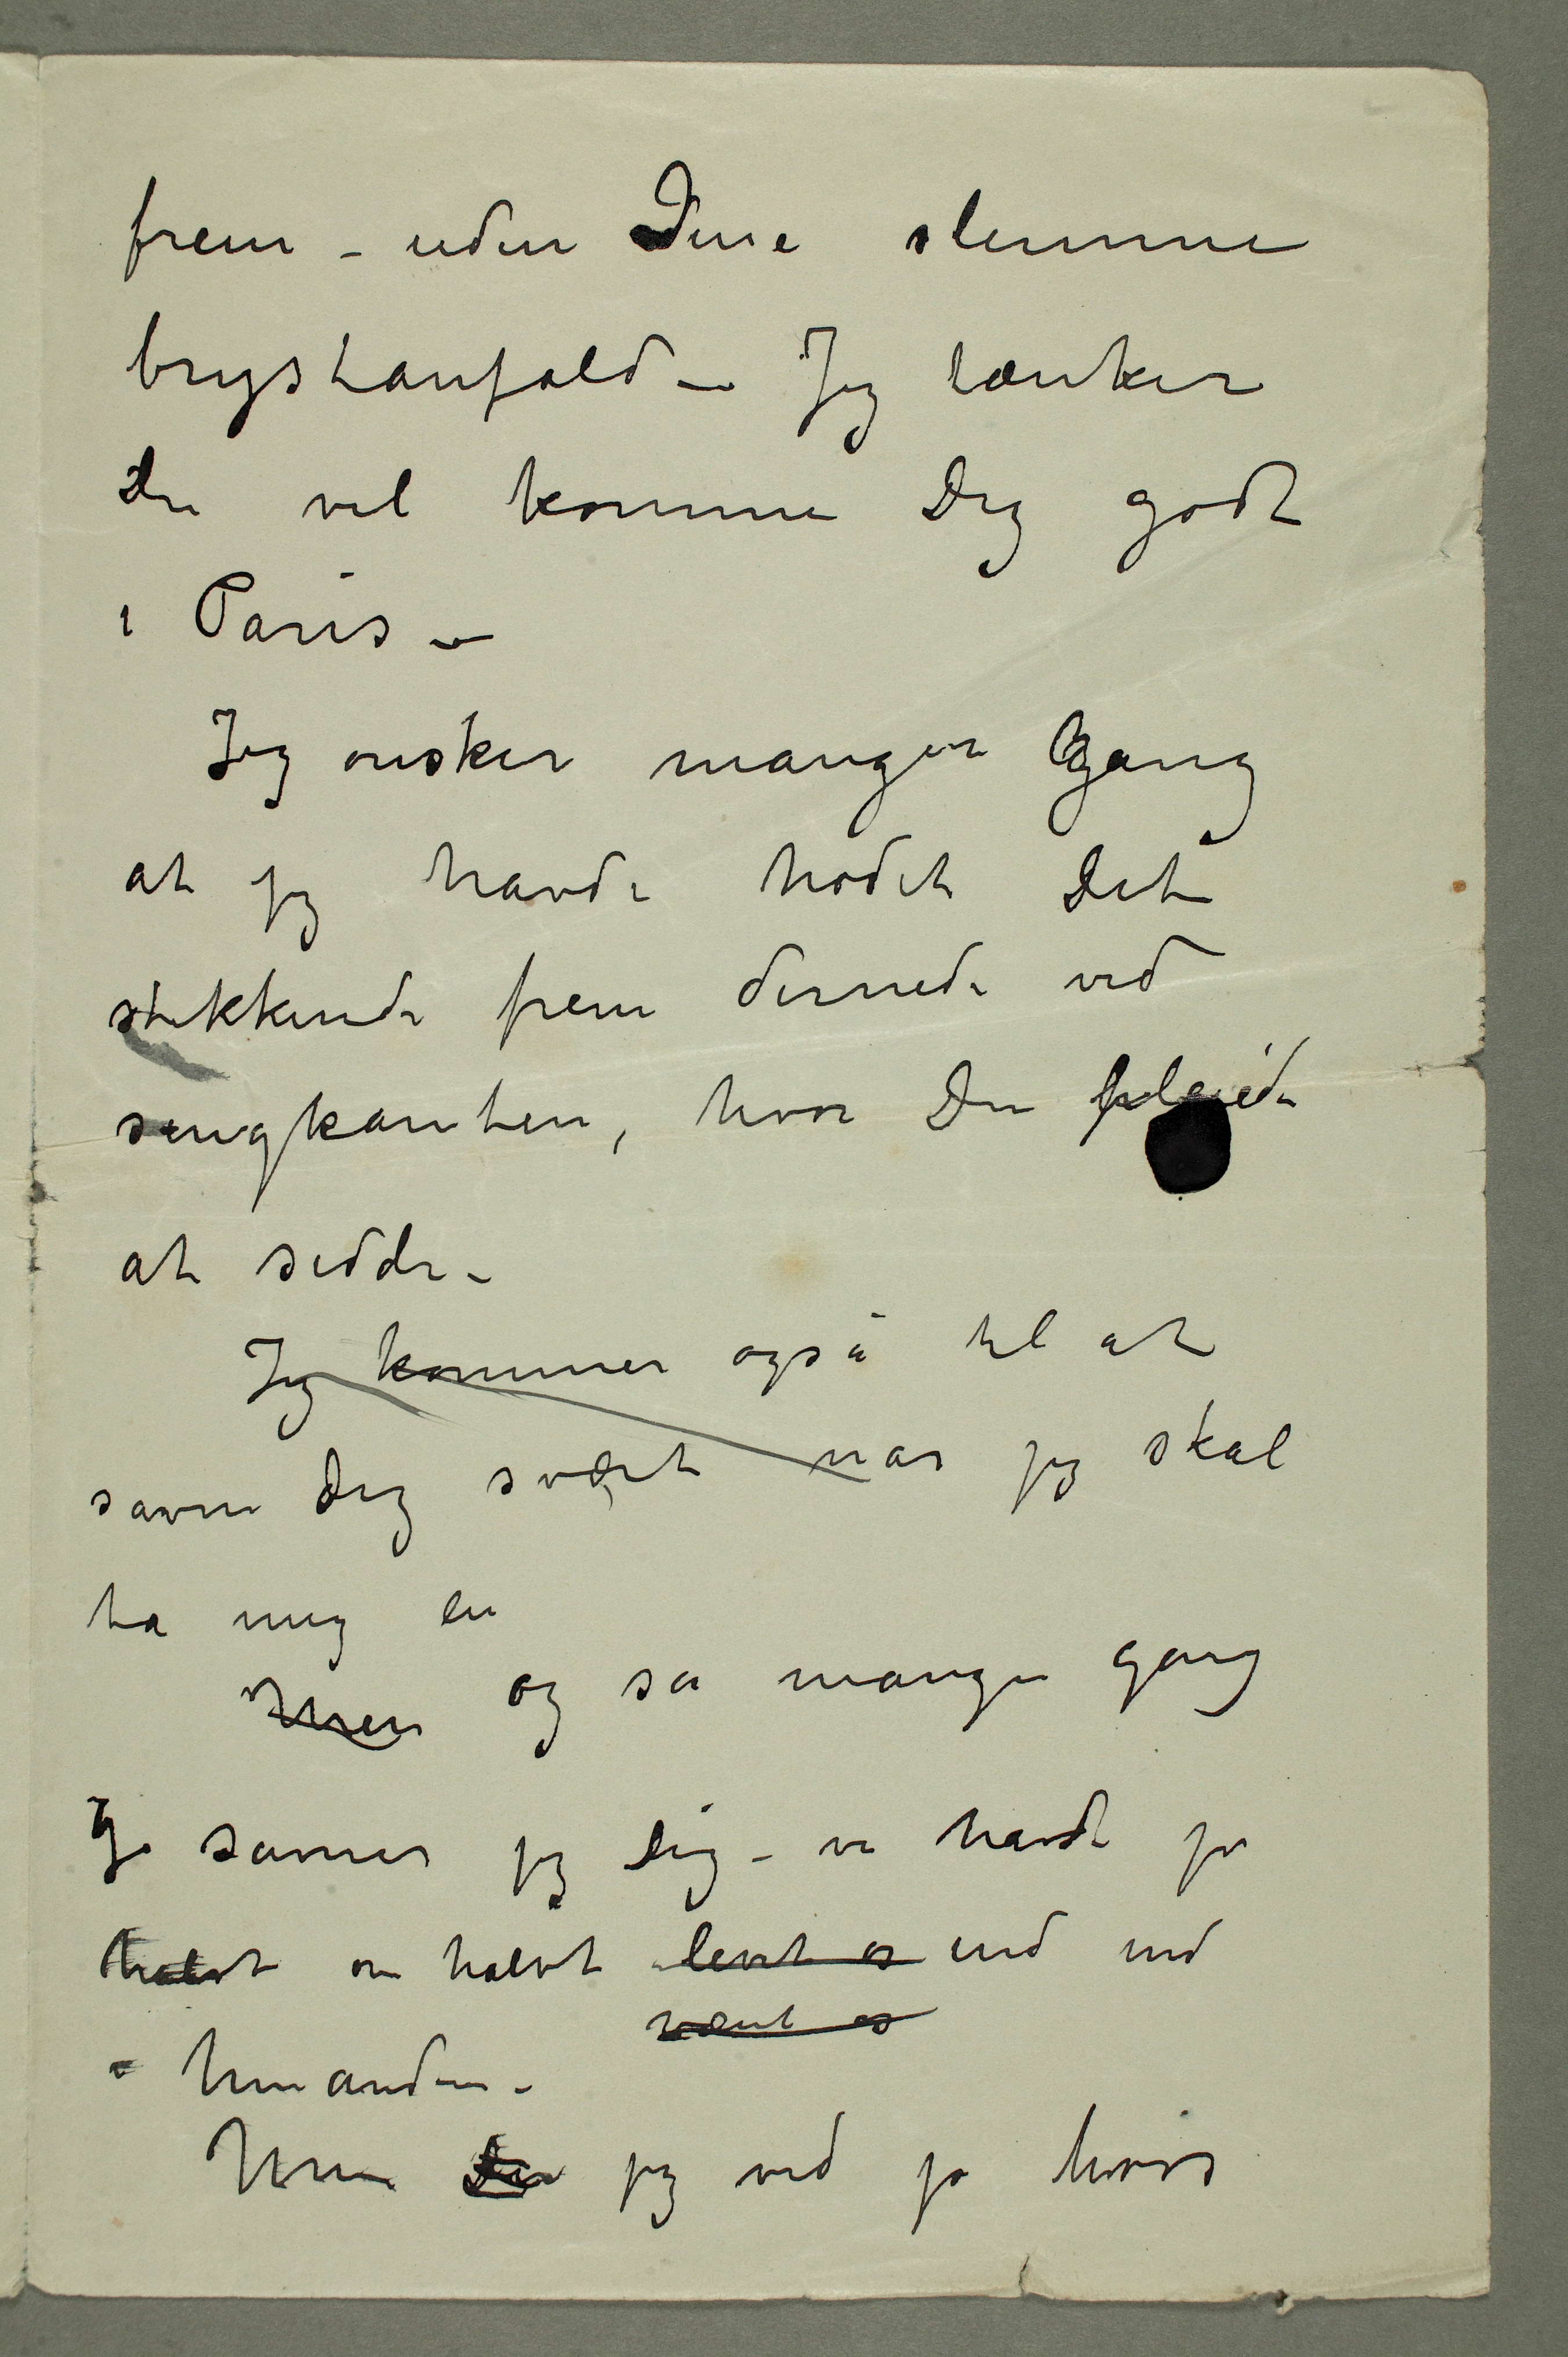 frem – uden Dine slemme
brystanfald – Jeg tænker
Du vil komme Dig godt
i Paris –
Jeg ønsker mangen Gang
at jeg havde hodet Dit
stikkende frem dernede ved
sengkanten, hvor Du pleiede
at sidde –
Jeg kommer også til at
savne Dig svært når jeg skal
ta mig en
Men og så mangen gang
savner jeg Dig – vi havde jo
halvt om halvt levet os ind ind
vænt os
i hinanden –
Men Du jeg ved jo hvor